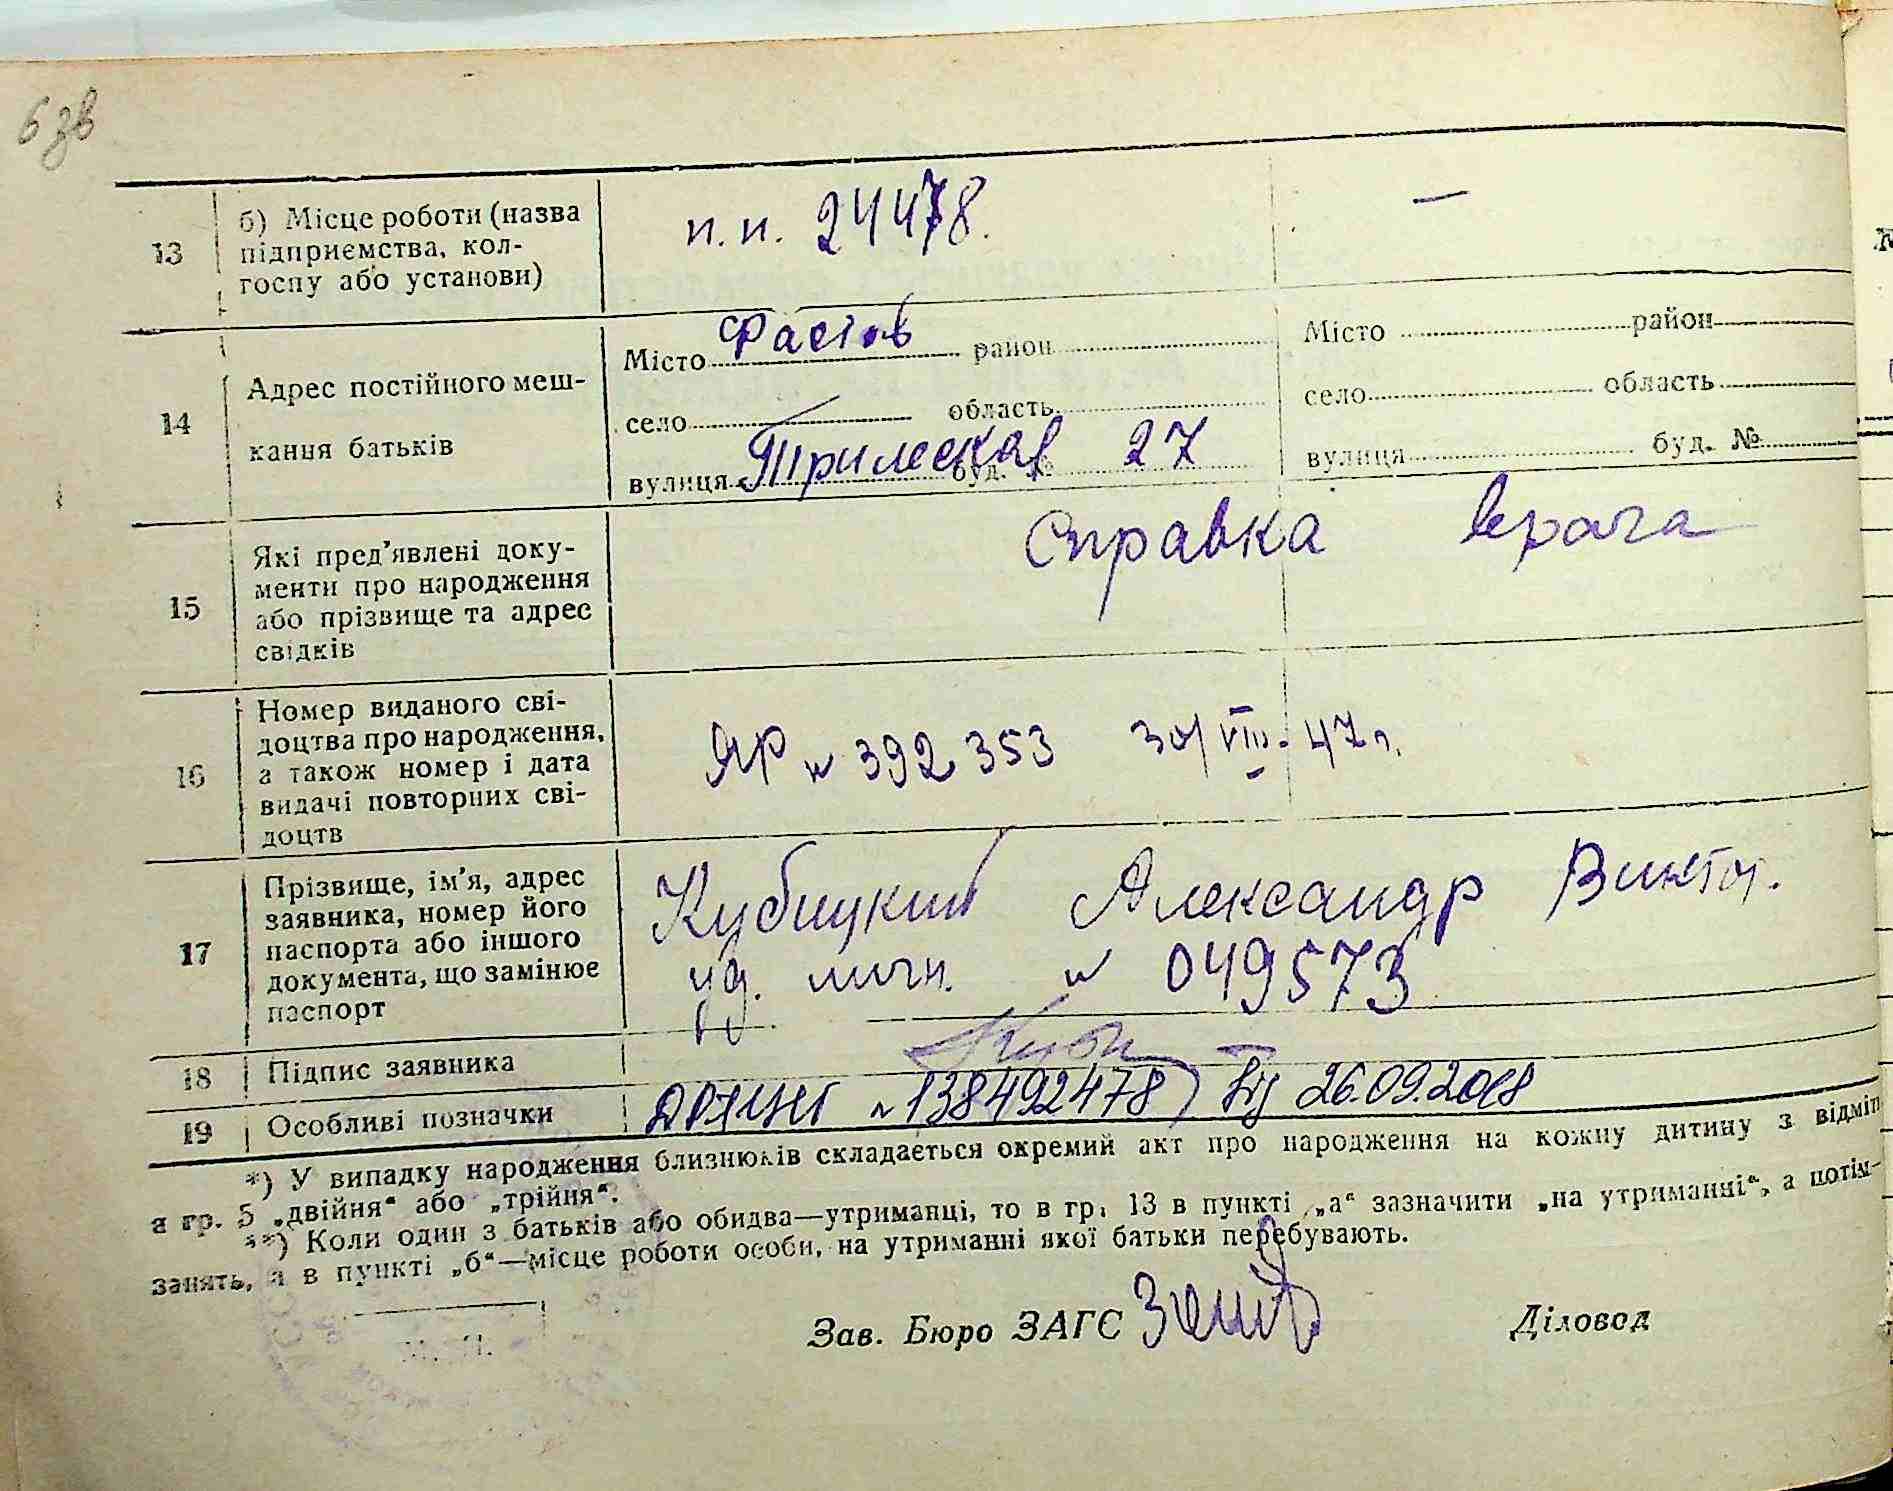 6 зв
13
б) Місце роботи (назва
підприємства, кол-
госпу або установи)
п.п. 24478.
—
14
Адрес постійного меш-
кання батьків
Місто Фастов район
село — область
вулиця Трилеская буд. № 27
Місто район
село область
вулиця буд. №
15
Які пред’явлені доку-
менти про народження
або прізвище та адрес
свідків
Справка врача
16
Номер виданого сві-
доцтва про народження,
а також номер і дата
видачі повторних сві-
доцтв
ЯР № 392353 30/VIII-47г.
17
Прізвище, ім’я, адрес
заявника, номер його
паспорта або іншого
документа, що замінює
паспорт
Кубицкий Александр Виктор.
уд. личн. № 049573
18
Підпис заявника
Куби
19
Особливі позначки
ДРАЦСГ № 138492478 від 26.09.2018
*) У випадку народження близнюків складається окремий акт про народження на кожну дитину з відміт
в гр. 5 „двійня“ або „трійня“.
**) Коли один з батьків або обидва—утриманці, то в гр. 13 в пункті „а“ зазначити „на утриманні“, а потім—
занять, а в пункті „б“—місце роботи особи, на утриманні якої батьки перебувають.
М. П.
Зав. Бюро ЗАГС
Діловод